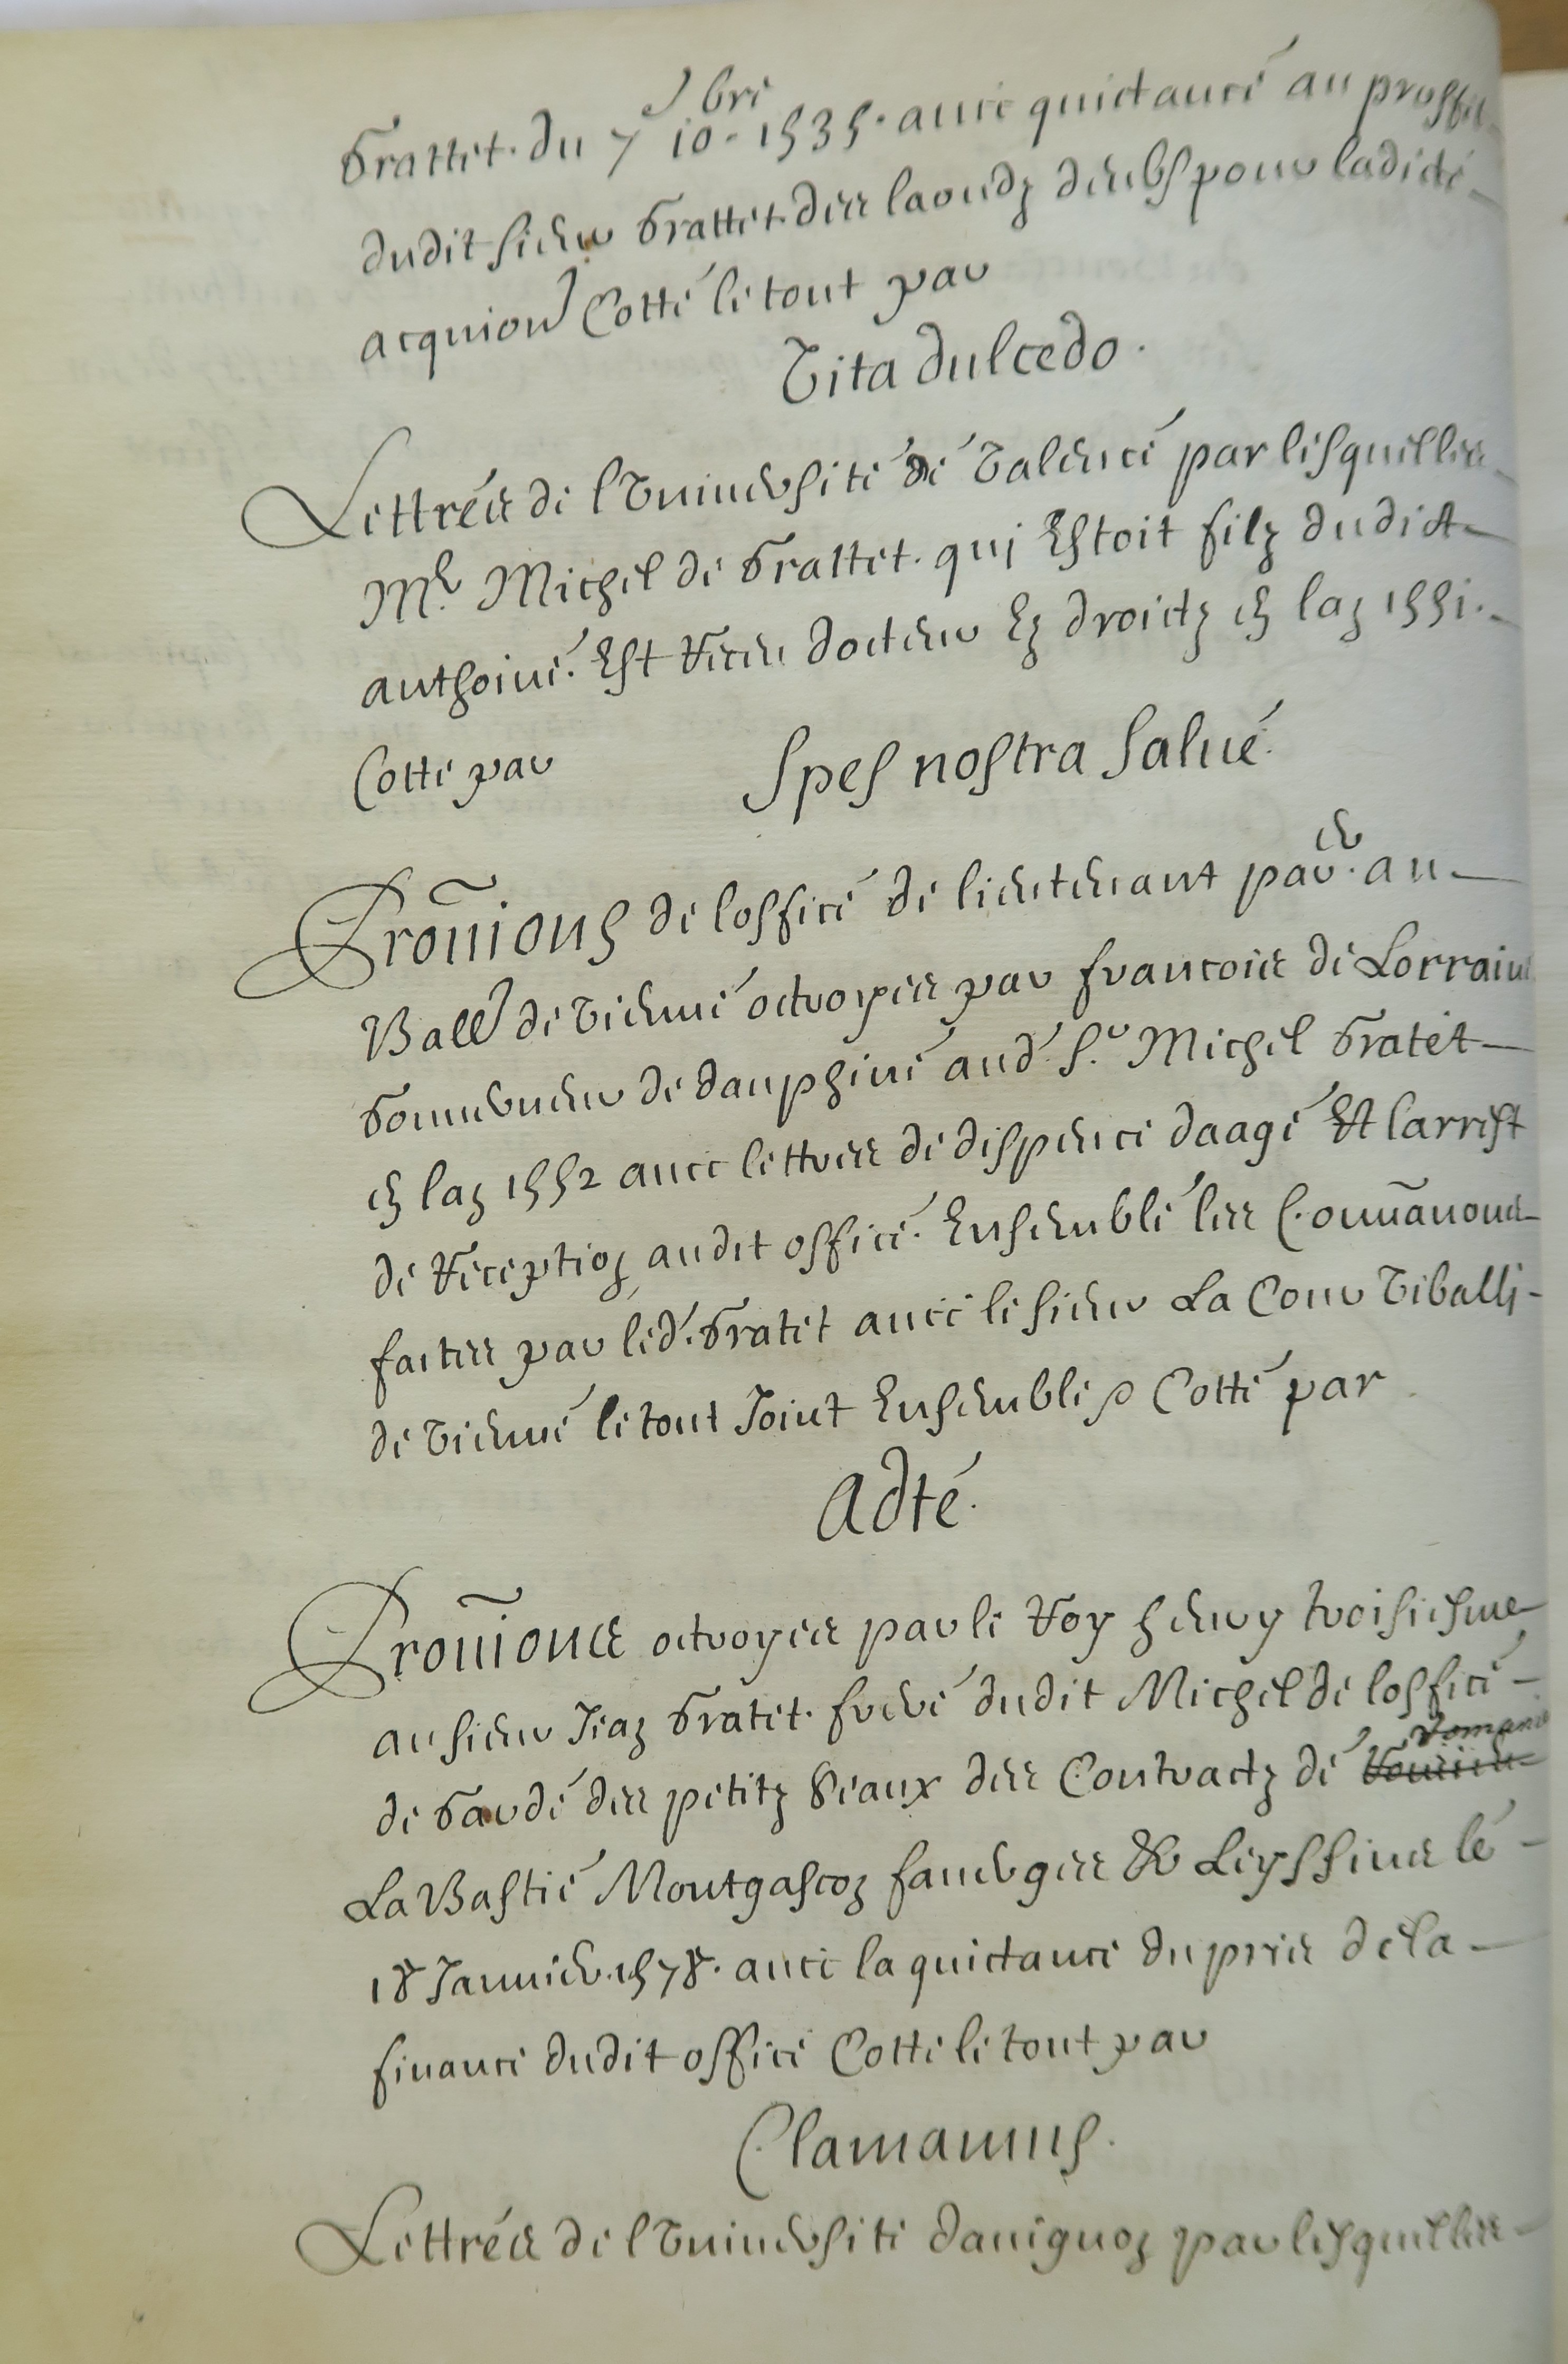 Grattet. du 7 10bre. 1535. avec quictance au proffit
dudit sieur Grattet des laoudz deubs pour ladicte
acquion Cotté le tout par
Vita dulcedo.
Lettres de l'Université de Valence par lesquelles
Mr. Michel de Grattet. qui Estoit filz dudict
anthoine. Est Receu docteur Ez droictz en lan 1551.
Cotte par Spes nostra Salve.
Provions de loffice de lieutenant par.er au
Ball de vienne octroyees par francois de Lorraine
Gouverneur de dauphiné aud. Sr. Michel Gratet
en lan 1552 avec lettres de dispence daage Et larrest
de Reception audit office. Ensemble les Convanons
faites par led. Gratet avec le sieur La Cour Viballi
de vienne le tout Joint Ensemble Cotté par
Adte.
Provions octroyees par le Roy henry troisiesme
au sieur Jean Gratet. frere dudit Michel de loffice
de Garde des petitz Seaux des Contractz de
La Bastie Montgascon faverges & Leyssins le
18 Janvier. 1578. avec la quictance du pries de la
finance dudit office Cotte le tout par
Clamamus.
Lettres de l'Université davignon par lesquelles